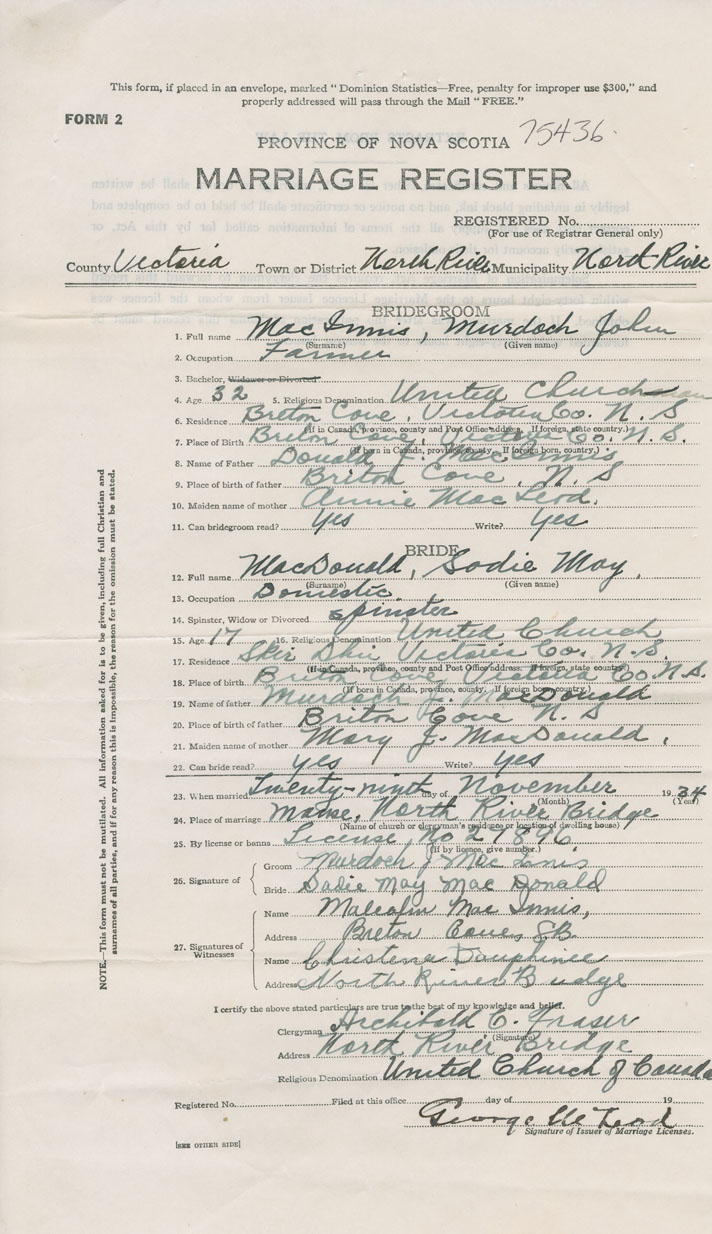 This form, if placed in an envelope, marked "Dominion Statistics—Free, penalty for improper use $300," and
properly addressed will pass through the Mail "FREE."
FORM 2
PROVINCE OF NOVA SCOTIA 75436.
MARRIAGE REGISTER
REGISTERED No.
(For use of Registrar General only)
County Victoria Town or District North River Municipality North River
BRIDEGROOM
1. Full name MacInnis, Murdoch John
(Surname) (Given name)
2. Occupation Farmer
3. Bachelor, Widower or Divorced
4. Age 32 5. Religious Denomination United Church
6. Residence Breton Cove, Victoria Co. N. S
(If in Canada, province, county and Post Office address. If foreign, state country.)
7. Place of Birth Breton Cove, Victoria Co. N. S.
(If born in Canada, province, county. If foreign born, country.)
8. Name of Father Donald J. MacInnis
9. Place of birth of father Briton Cove, N. S
10. Maiden name of mother Annie MacLeod.
11. Can bridegroom read? Yes Write? Yes
BRIDE
12. Full name MacDonald, Sadie May,
(Surname) (Given name)
13. Occupation Domestic
14. Spinster, Widow or Divorced spinster
15. Age 17 16. Religious Denomination United Church
17. Residence Skir Dhu Victoria Co. N. S.
(If in Canada, province, county and Post Office address. If foreign, state country)
18. Place of birth Briton Cove Victoria Co. N.S.
(If born in Canada, province, county. If foreign born, country.)
19. Name of father Murdoch J. MacDonald
20. Place of birth of father Briton Cove N. S
21. Maiden name of mother Mary J. MacDonald,
22. Can bride read? yes Write? yes
23. When married Twenty-ninth day of November 1934
(Month) (Year)
24. Place of marriage Manse, North River Bridge
(Name of church or clergyman's residence or location of dwelling house)
25. By license or banns License, No 27896.
(If by licence, give number.)
26. Signature of
Groom Murdoch J MacInnis
Bride Sadie May MacDonald
27. Signatures of Witnesses
Name Malcolm MacInnis,
Address Breton Cove,
Name Christena Dauphinee
Address North River Bridge
I certify the above stated particulars are true to the best of my knowledge and belief.
Clergyman Archibald C. Fraser
(Signature)
Address North River Bridge
Religious Denomination United Church of Canada
Registered No. Filed at this office day of 19
George McLeod
Signature of Issuer of Marriage Licenses.
[SEE OTHER SIDE]
NOTE.—This form must not be mutilated. All information asked for is to be given, including full Christian and
surnames of all parties, and if for any reason this is impossible, the reason for the omission must be stated.